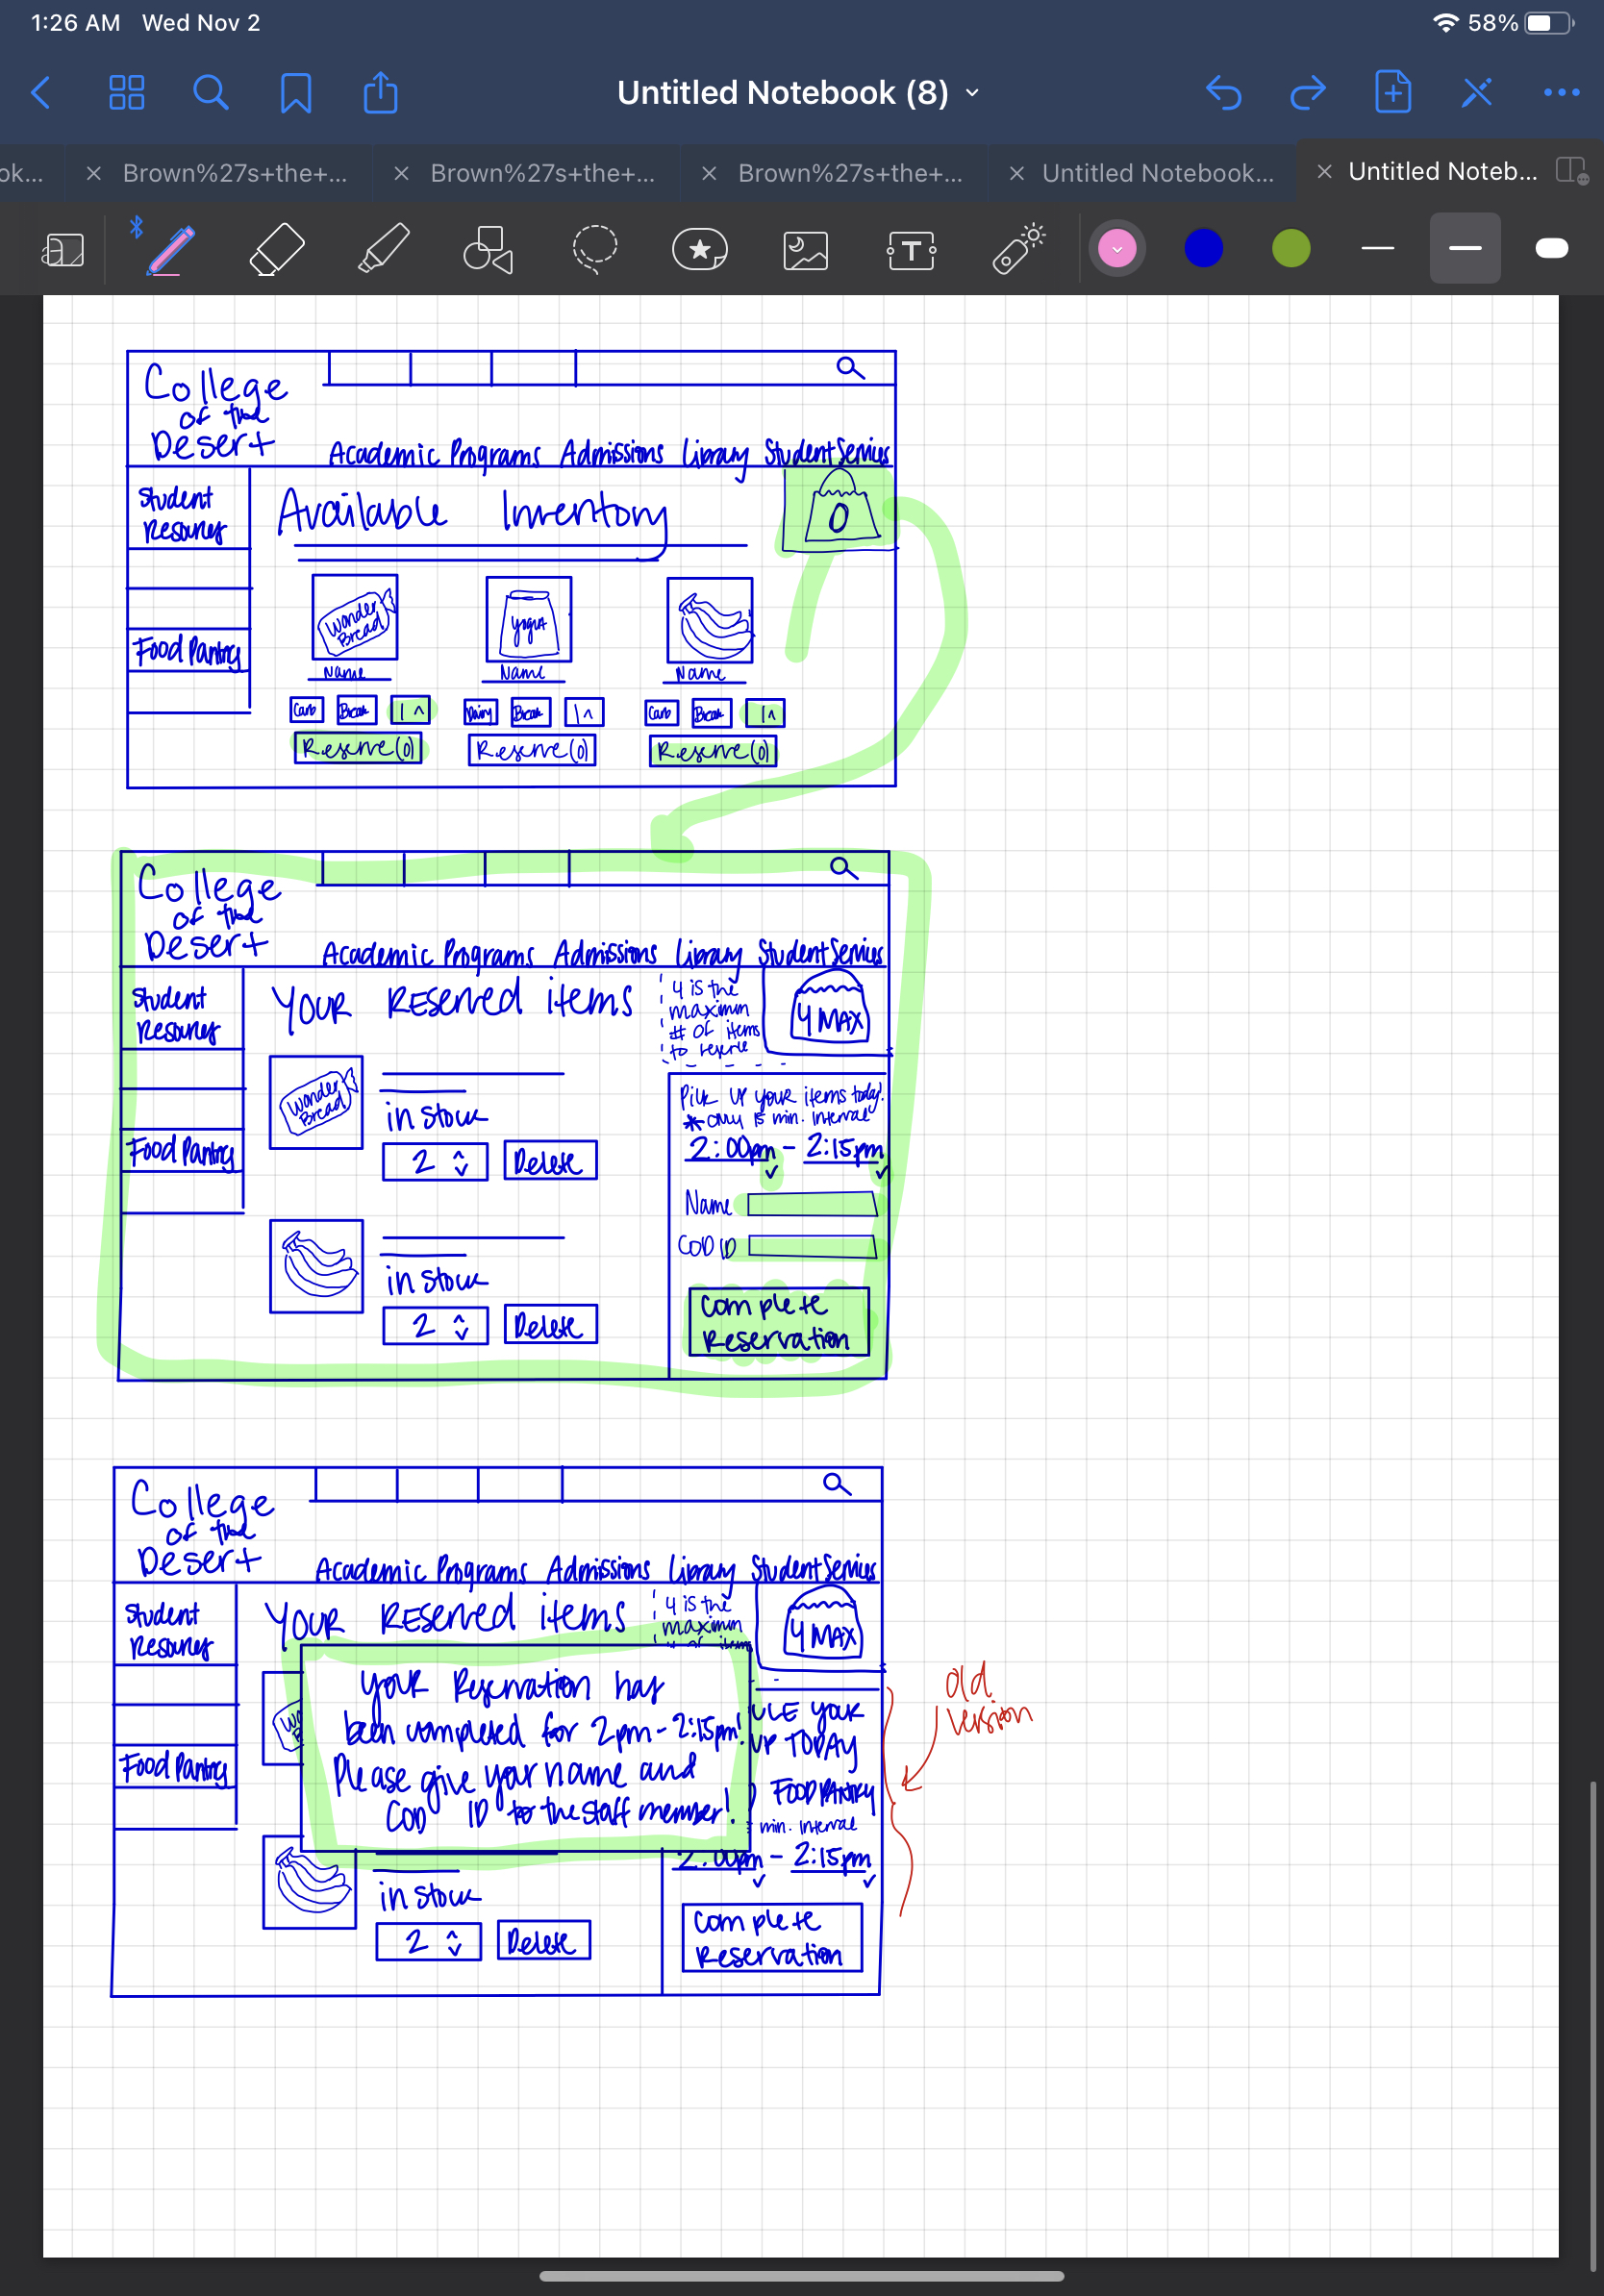 1:26 AM Wed Nov 2
58%
Untitled Notebook (8)
ok...
Brown%27s+the+...
Brown%27s+the+...
Brown%27s+the+...
Untitled Notebook...
Untitled Noteb...
a
T
College
of the
Desert
Academic Programs Admissions Library Student Services
Student
Resources
Food Pantry
Available Inventory
0
Wonder
Bread
Yogurt
Name
Name
Name
Carb
1 ^
Dairy
1 ^
Carb
1 ^
Reserve (0)
Reserve (0)
Reserve (0)
College
of the
Desert
Academic Programs Admissions Library Student Services
Student
Resources
Food Pantry
Your Reserved items
4 is the
maximum
# of items
to reserve
4 MAX
Wonder
Bread
in stock
2
Delete
in stock
2
Delete
Pick up your items today!
* only 15 min. interval
2:00pm - 2:15pm
Name
COD ID
Complete
Reservation
College
of the
Desert
Academic Programs Admissions Library Student Services
Student
Resources
Food Pantry
Your Reserved items
4 is the
maximum
# of items
4 MAX
Your Reservation has
been completed for 2pm - 2:15pm!
Please give your name and
COD ID to the staff member!
Wo
B
ULE YOUR
UP TODAY
) FOOD PANTRY
min. interval
2:00pm - 2:15pm
in stock
2
Delete
Complete
Reservation
old
version